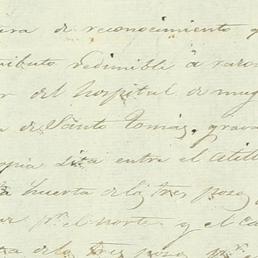 ura de reconocimiento y
ributo redimible á razon
r del hospital de muge
a de Santo Tomás, grava
opia sita entre el
la huerta de la tres poso
ur pr. el norte y el ca
ta de la tres poso pr.